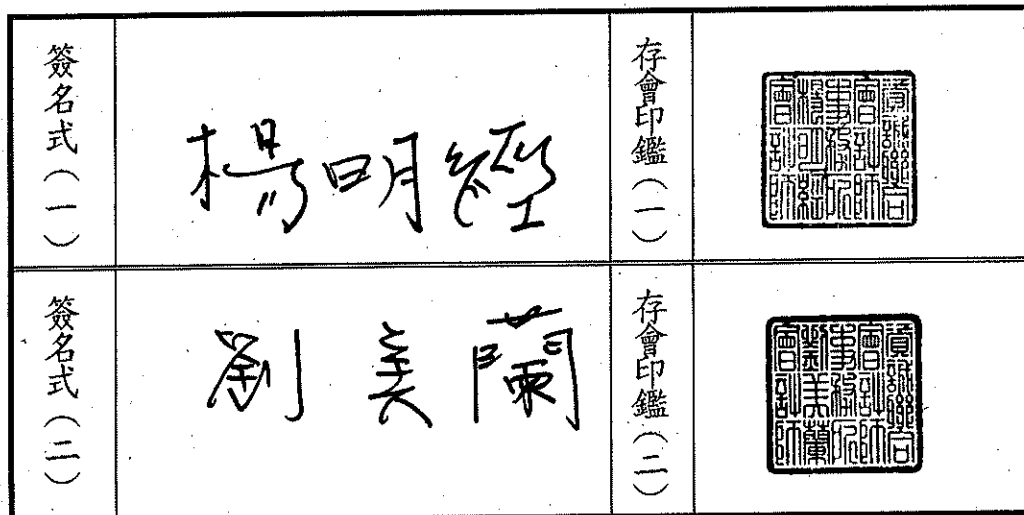 簽名式(一)
楊明經
存會印鑑(一)
資誠聯合
會計師
事務所
楊明經
會計師
簽名式(二)
劉美蘭
存會印鑑(二)
資誠聯合
會計師
事務所
劉美蘭
會計師